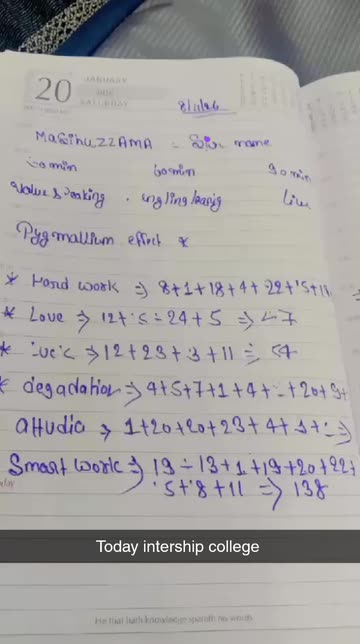 20
JANUARY
SATURDAY
8/11/26
MASihuZZAMA = Sir name
30min 60min 30min
Value speaking . Live
Pygmallium effect *
* Hard work ⇒ 8+1+18+4+22+15+18
* Love ⇒ 12+15=24+5 ⇒ 47
* ⇒ 12+23+3+11 = 54
* degadation ⇒ 4+5+7+1+4+ +20+9+
Attudie ⇒ 1+20+20+23+4+9+ ⇒
Smart work ⇒ 19-13+1+19+20+22+
15+18+11 ⇒ 138
Today intership college
He that hath knowledge spareth his words